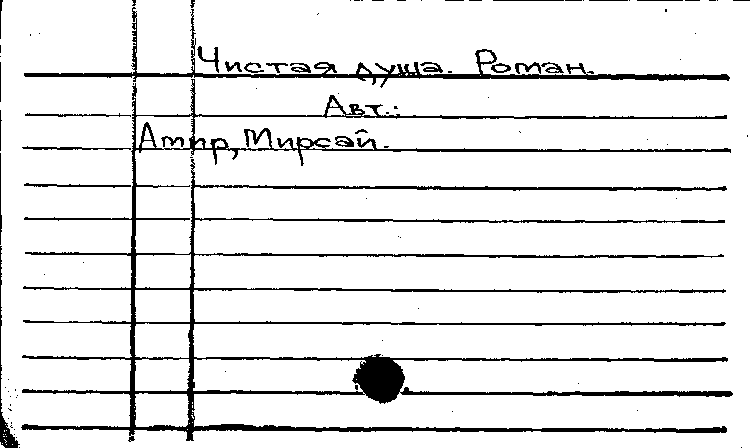 Чистая душа. Роман.
Авт.:
Амир, Мирсай.